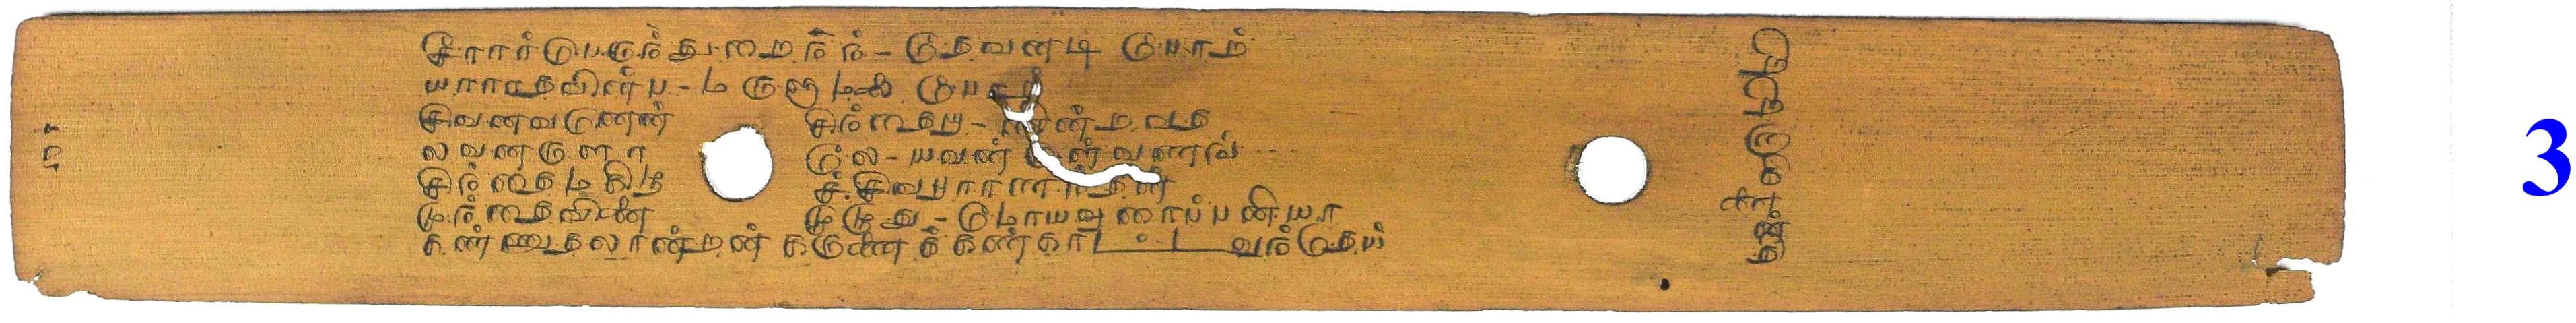 சீரார்பெருந்துறைநந் - தேவனடி போற்
யாராதவின்ப - மருளுமலை போற்
சிவனவனென் சிந்தையு - ணின்றவத
லவனருளா லே - யவன்றாள்வணங்
சிந்தைமகிழ ச்சிவபுராணந்தன்
முந்தைவினை முழுது - மோயவுரைப்பனியா
கண்ணுதலான்றன் கருணைக்கண்காட்டவந்தெய்
3